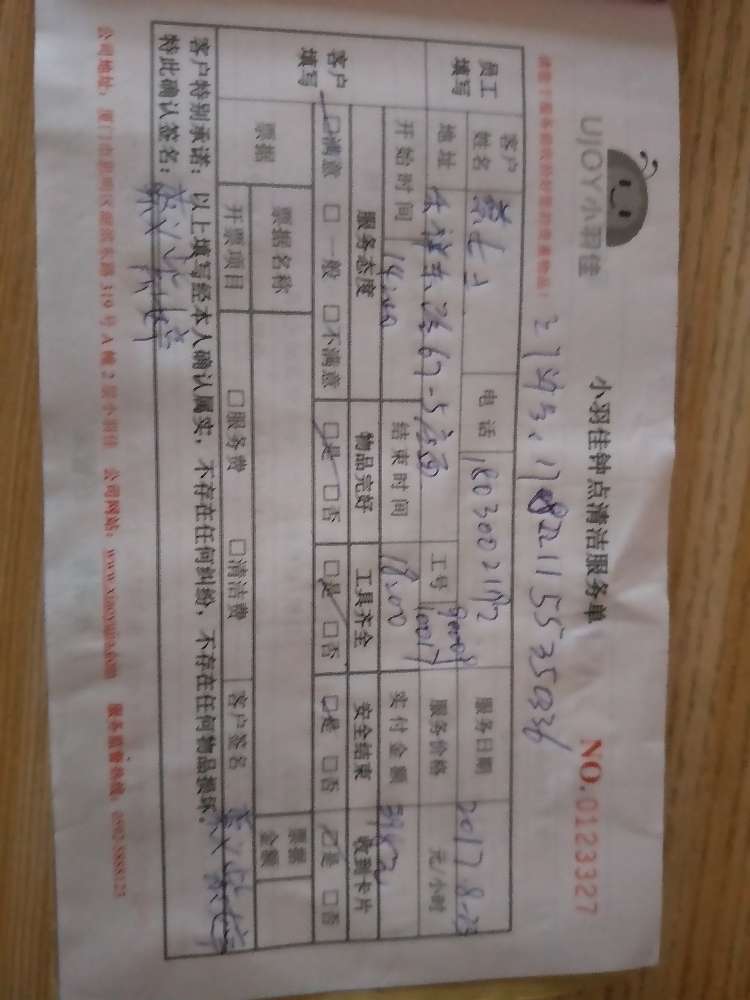 UJOY小羽佳
小羽佳钟点清洁服务单
NO.0123327
请您于服务前收拾好您的贵重物品！
员工填写
客户姓名
电话
18030021172
服务日期
2017 8-23
地址
工号
90007
10017
服务价格
元/小时
开始时间
14:00
结束时间
18:00
实付金额
客户填写
服务态度
物品完好
工具齐全
安全结束
收到卡片
□满意 □一般 □不满意
□是 □否
□是 □否
□是 □否
□是 □否
票据
票据名称
票据金额
开票项目
□服务费 □清洁费
客户签名
客户特别承诺：以上填写经本人确认属实，不存在任何纠纷，不存在任何物品损坏。
特此确认签名：
公司地址：厦门市思明区湖滨东路319号A幢2层小羽佳 公司网站：www.xiaoyujia.com 服务监督热线：0592-5888125